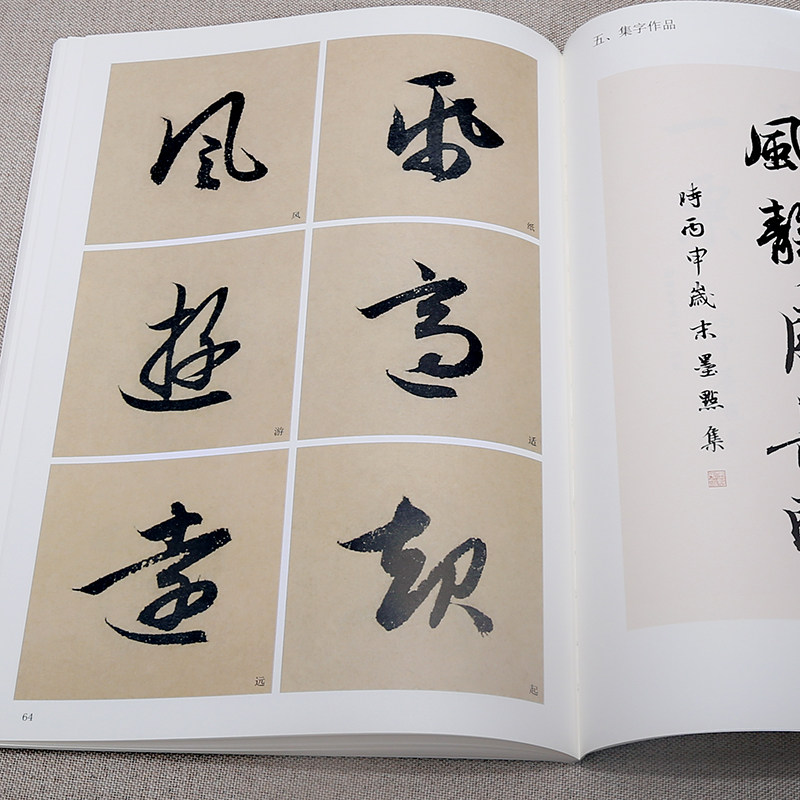 風
风
帋
纸
遊
游
適
适
遠
远
起
起
64
五、集字作品
風靜
時丙申歲末墨點集